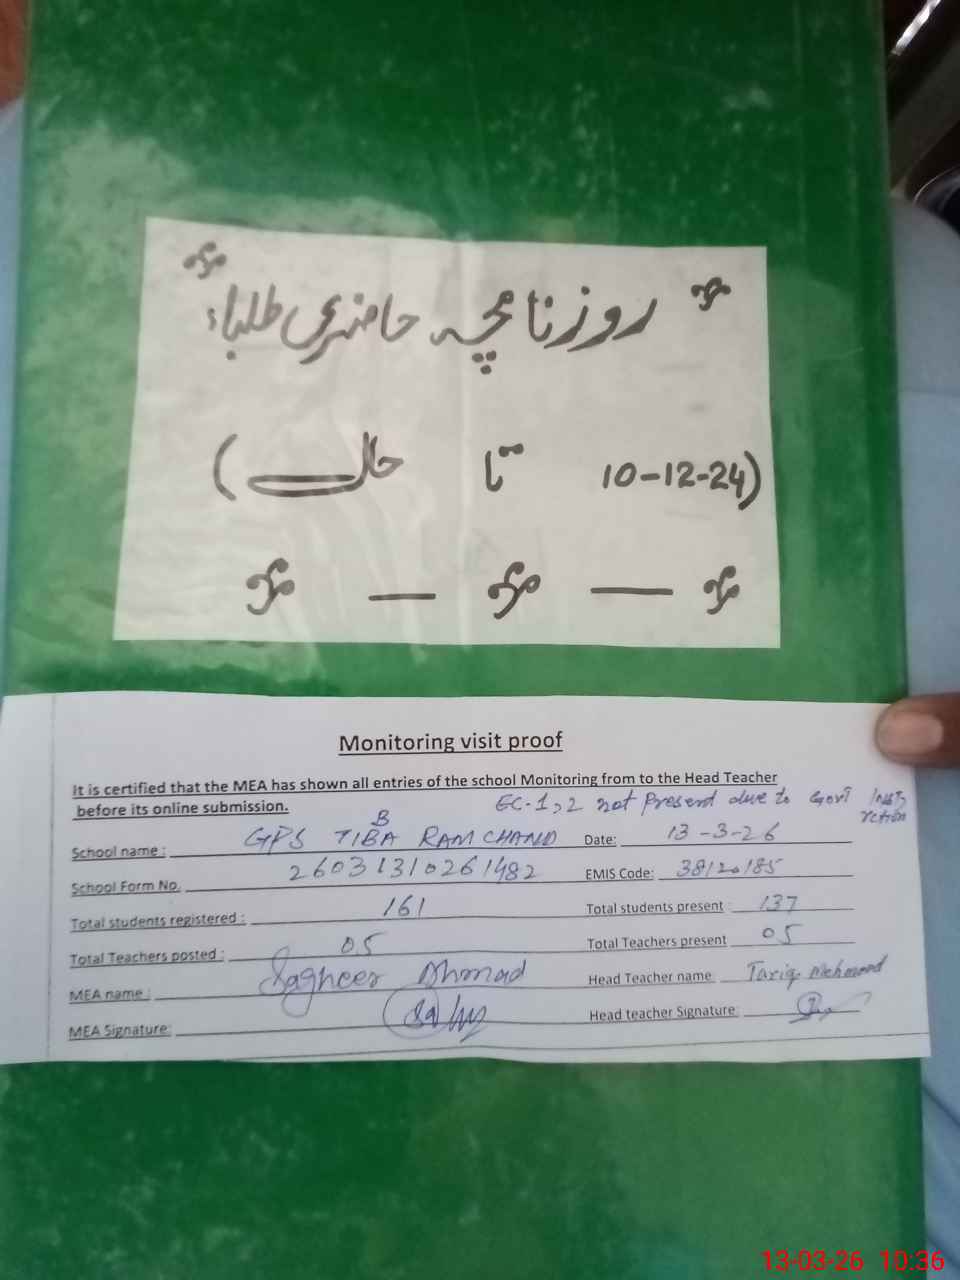 روزنامچہ حاضری طلباء
(10-12-24 تا حال)
Monitoring visit proof
It is certified that the MEA has shown all entries of the school Monitoring from to the Head Teacher
before its online submission. EC-1,2 not Present due to Govt Instruction
School name : GPS TIBBA RAM CHAND Date: 13-3-26
School Form No. 26031310261482 EMIS Code: 38120185
Total students registered : 161 Total students present : 137
Total Teachers posted : 05 Total Teachers present 05
MEA name : Sagheer Ahmad Head Teacher name Tariq Mehmood
MEA Signature: Head teacher Signature:
13-03-26 10:36